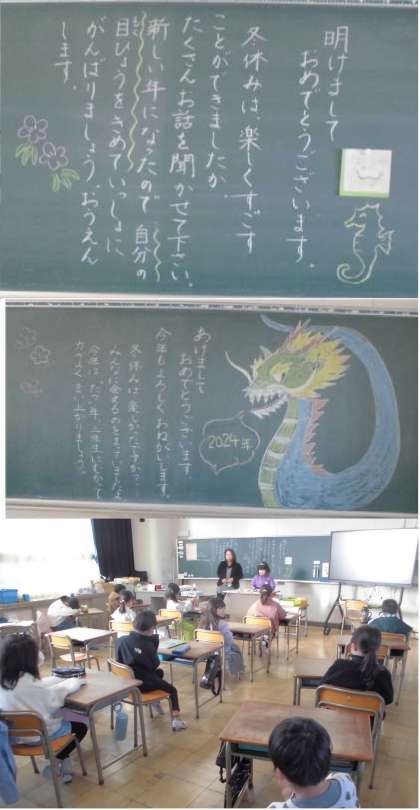 明けまして
おめでとうございます。
冬休みは、楽しくすごす
ことができましたか。
たくさんお話を聞かせて下さい。
新しい年になったので自分の
目ひょうをきめていっしょに
がんばりましょう。おうえん
します。
あけまして
おめでとうございます。
今年もよろしくおねがいします。
冬休みは楽しかったですか?
みんなに会えるのをまっていましたよ。
今年は、たつ年。三年生にむかって
力づよくまい上がりましょう。
2024年